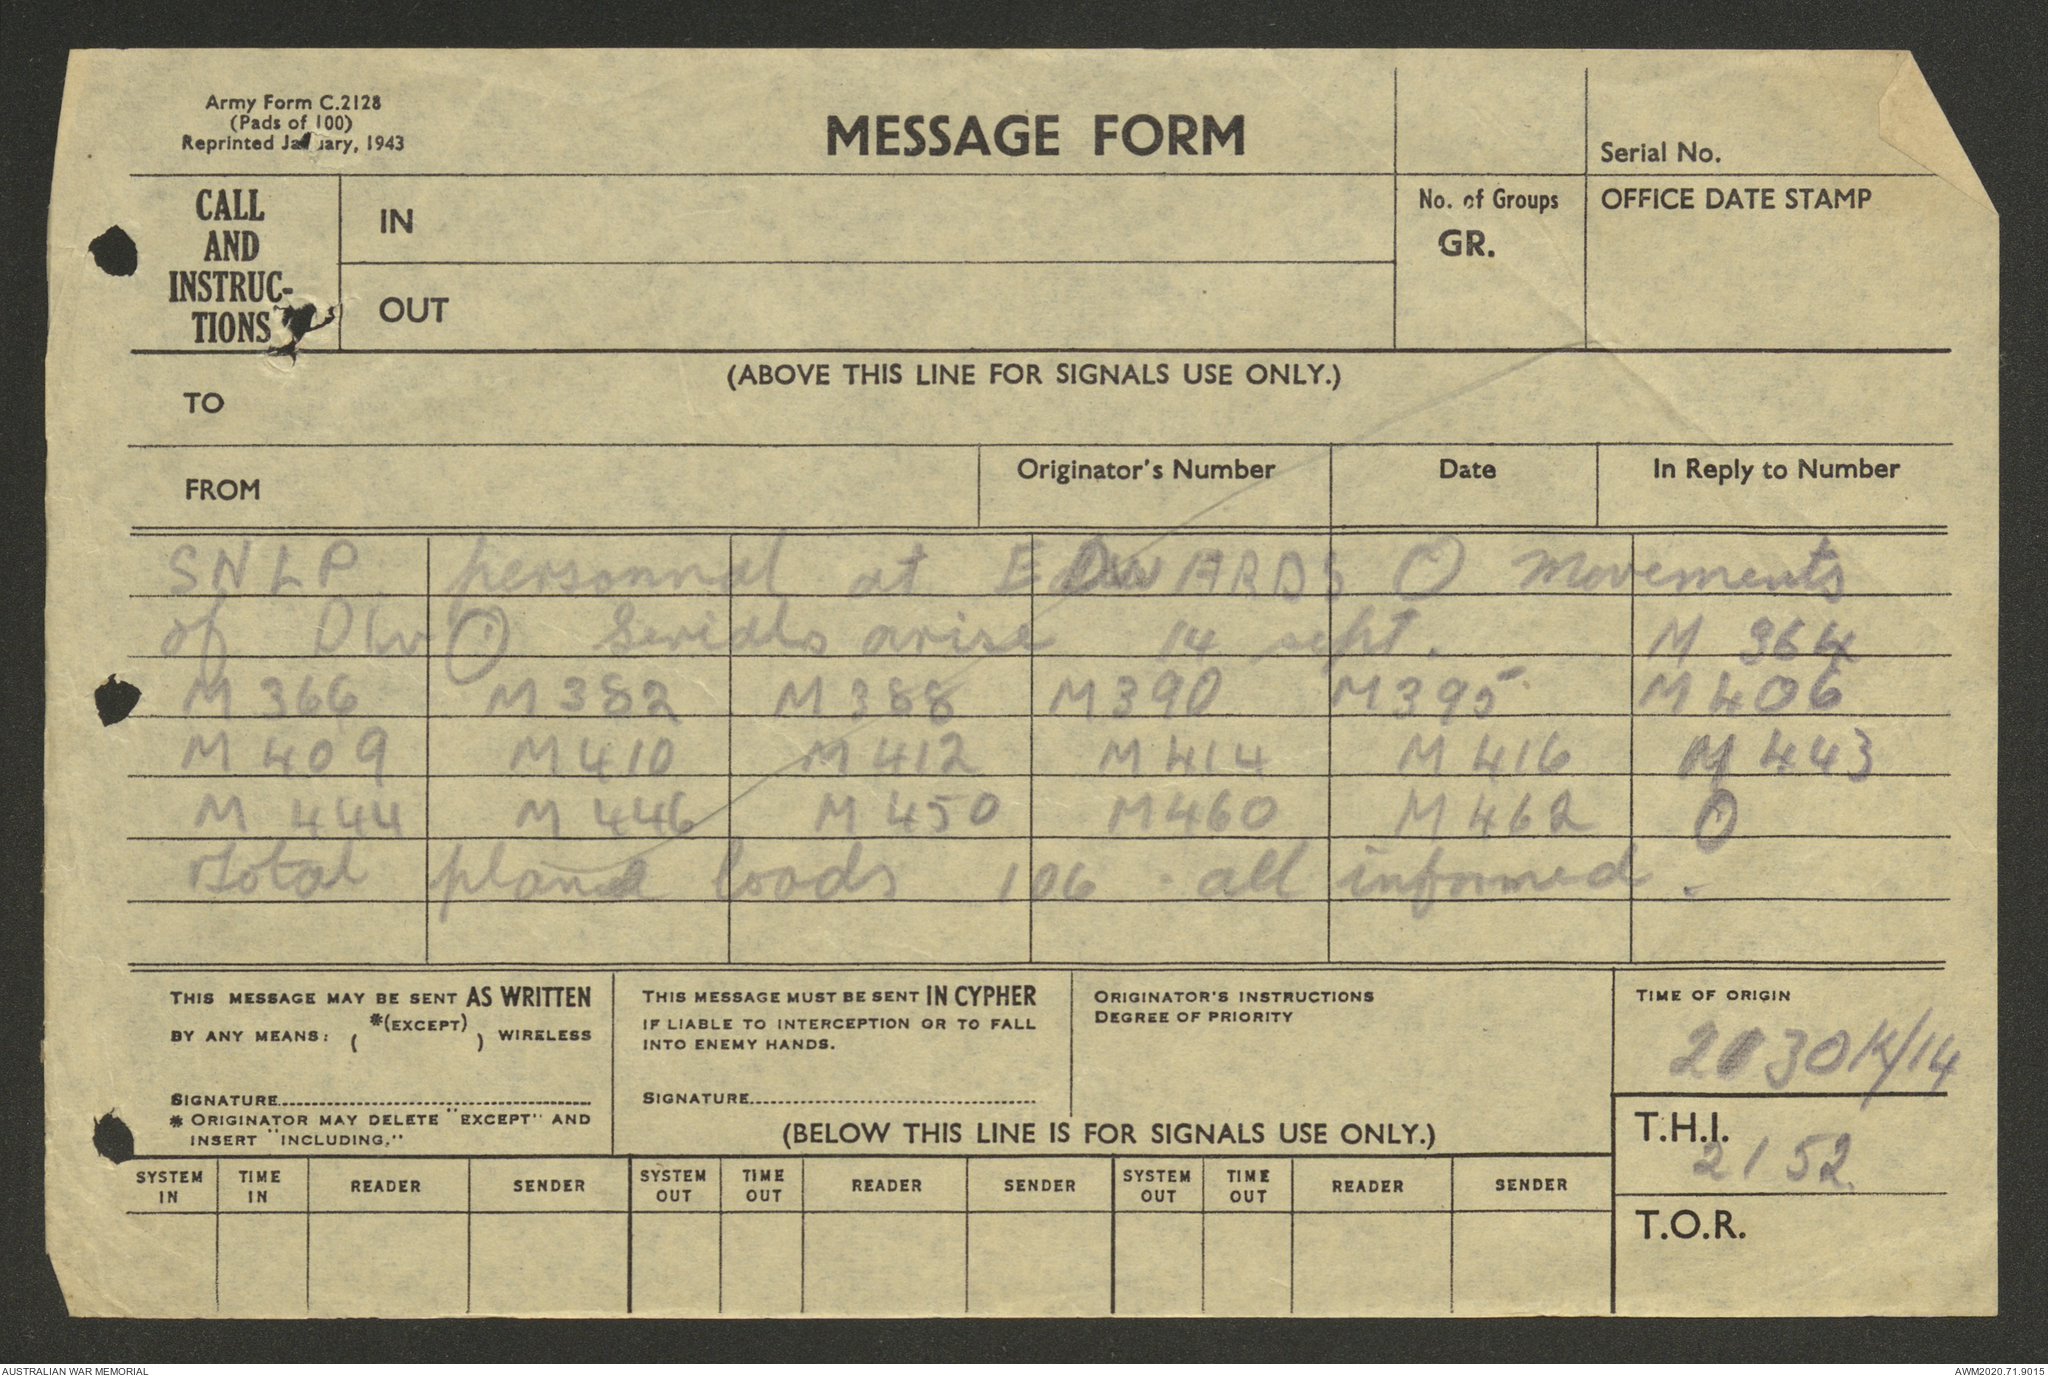 Army Form C.2128
(Pads of 100)
Reprinted January, 1943
MESSAGE FORM
Serial No.
CALL
AND
INSTRUC-
TIONS
IN
OUT
No. of Groups
GR.
OFFICE DATE STAMP
(ABOVE THIS LINE FOR SIGNALS USE ONLY.)
TO
FROM
Originator's Number
Date
In Reply to Number
SNLP personnel at EDWARDS O Movements
of Div O Serials arise 14 sept. M 364
M 366 M 382 M 388 M 390 M 395 M 406
M 409 M 410 M 412 M 414 M 416 M 443
M 444 M 446 M 450 M 460 M 462 O
Total plane loads 106 . all informed .
THIS MESSAGE MAY BE SENT AS WRITTEN
BY ANY MEANS: ( *(EXCEPT) ) WIRELESS
SIGNATURE
* ORIGINATOR MAY DELETE "EXCEPT" AND
INSERT "INCLUDING."
THIS MESSAGE MUST BE SENT IN CYPHER
IF LIABLE TO INTERCEPTION OR TO FALL
INTO ENEMY HANDS.
SIGNATURE
ORIGINATOR'S INSTRUCTIONS
DEGREE OF PRIORITY
(BELOW THIS LINE IS FOR SIGNALS USE ONLY.)
TIME OF ORIGIN
2030K/14
T.H.I.
2152
T.O.R.
SYSTEM IN TIME IN READER SENDER SYSTEM OUT TIME OUT READER SENDER SYSTEM OUT TIME OUT READER SENDER
AUSTRALIAN WAR MEMORIAL
AWM2020.71.9015